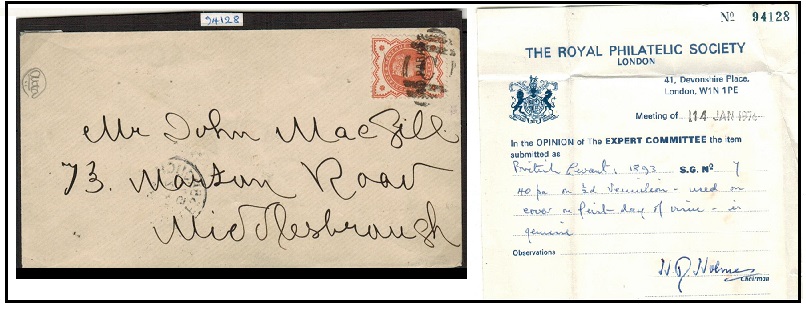 94128
Mr John MacGill
73. Marton Road
Middlesbrough
Nº 94128
THE ROYAL PHILATELIC SOCIETY
LONDON
41, Devonshire Place,
London, W1N 1PE
Meeting of 14 JAN
In the OPINION of The EXPERT COMMITTEE the item
submitted as
British Levant, 1893 S.G. Nº 7
40 pa on ½d Vermilion - used on
cover on first day of issue - is
genuine
Observations
Chairman